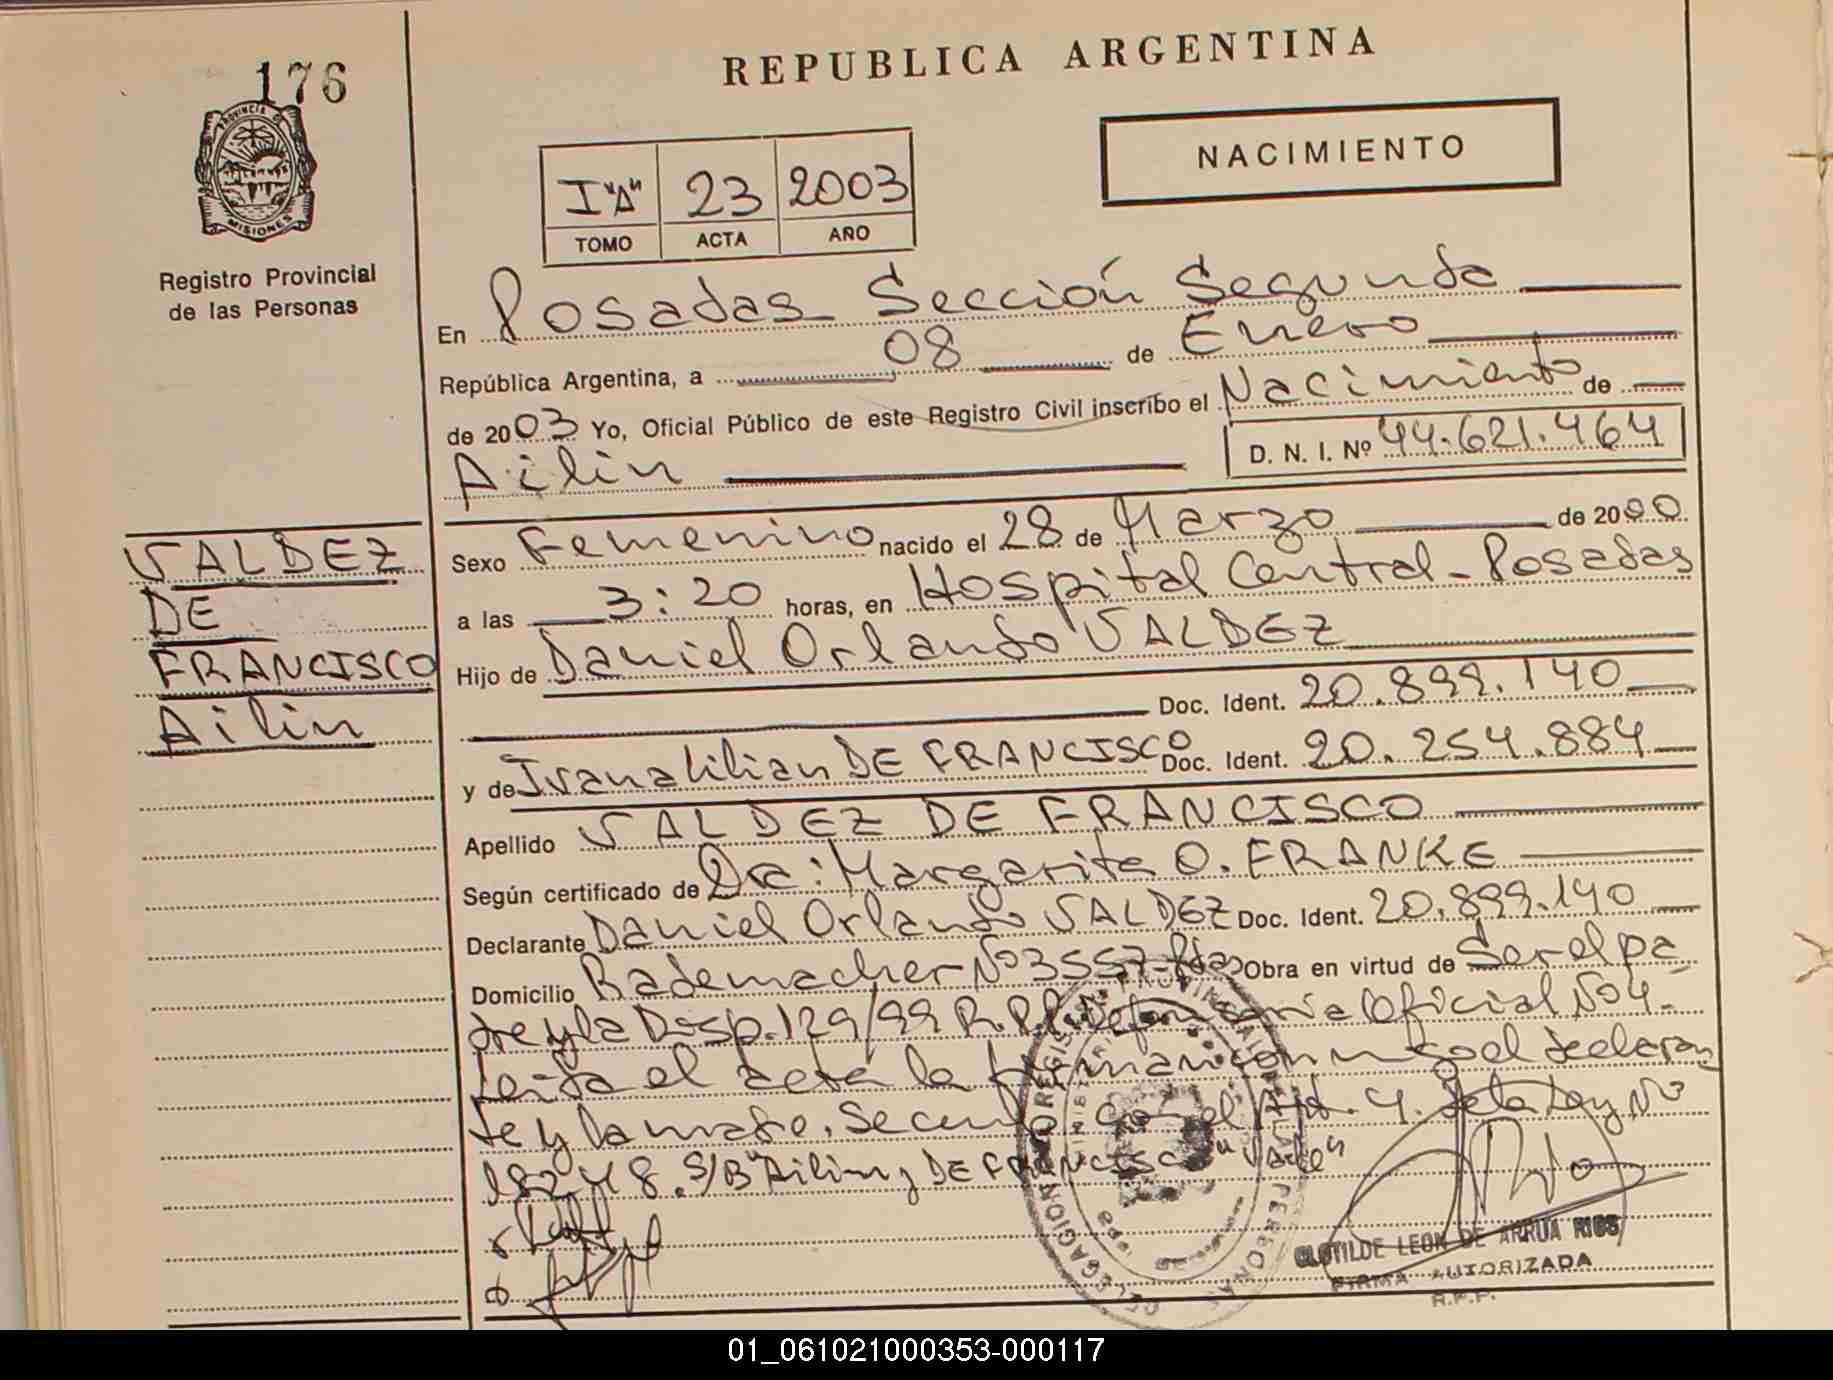 176
REPUBLICA ARGENTINA
NACIMIENTO
PROVINCIA DE
MISIONES
Registro Provincial
de las Personas
I "A" 23 2003
TOMO ACTA AÑO
En Posadas Sección Segunda
República Argentina, a 08 de Enero
de 2003 Yo, Oficial Público de este Registro Civil inscribo el Nacimiento de
Ailin
D. N. I. Nº 44.621.464
VALDEZ
DE
FRANCISCO
Ailin
Sexo Femenino nacido el 28 de Marzo de 2000
a las 3:20 horas, en Hospital Central - Posadas
Hijo de Daniel Orlando VALDEZ
Doc. Ident. 20.899.140
y de Ivana Lilian DE FRANCISCO Doc. Ident. 20.254.884
Apellido VALDEZ DE FRANCISCO
Según certificado de Dra: Margarita O. FRANKE
Declarante Daniel Orlando VALDEZ Doc. Ident. 20.899.140
Domicilio Rademacher Nº 3557 - Pdas Obra en virtud de Ser el pa
dre y la Disp. 129/99 R.P.P. Defensoria Oficial Nº 4.
Leida el acta la firman conmigo el declaran
te y la madre. Se cumplió con el Art. 4. de la Ley Nº
18248. S/B "Ailin y DE FRANCISCO" Vale"
CLOTILDE LEON DE ARRUA RIOS
FIRMA AUTORIZADA
R.P.P.
01_061021000353-000117